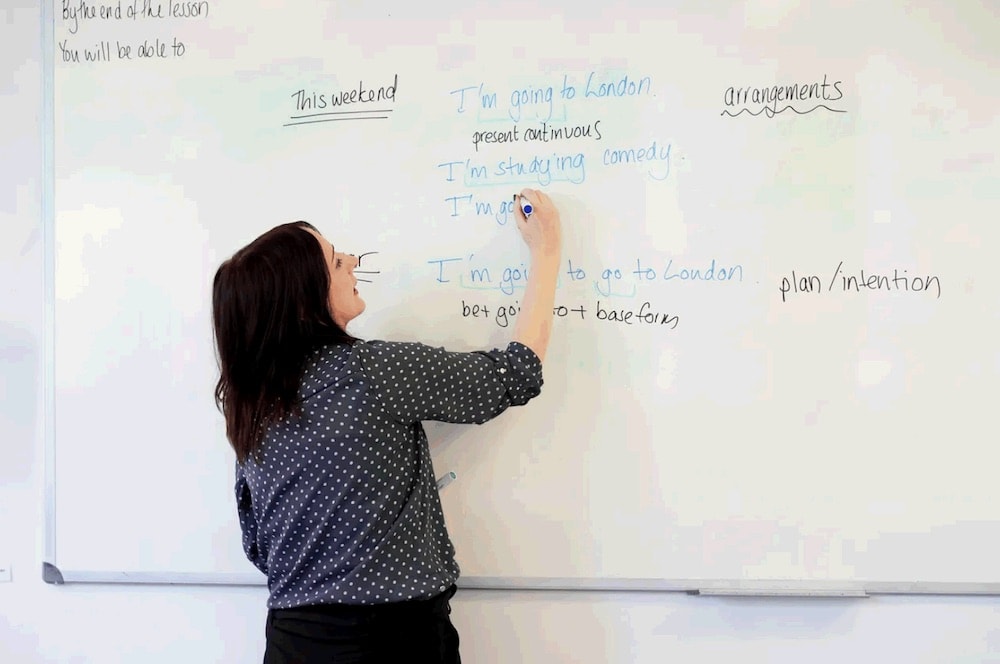 By the end of the lesson
You will be able to
This weekend
I'm going to London.
arrangements
present continuous
I'm studying comedy.
I'm go
I'm goi to go to London
plan/intention
be+ goi to + base form